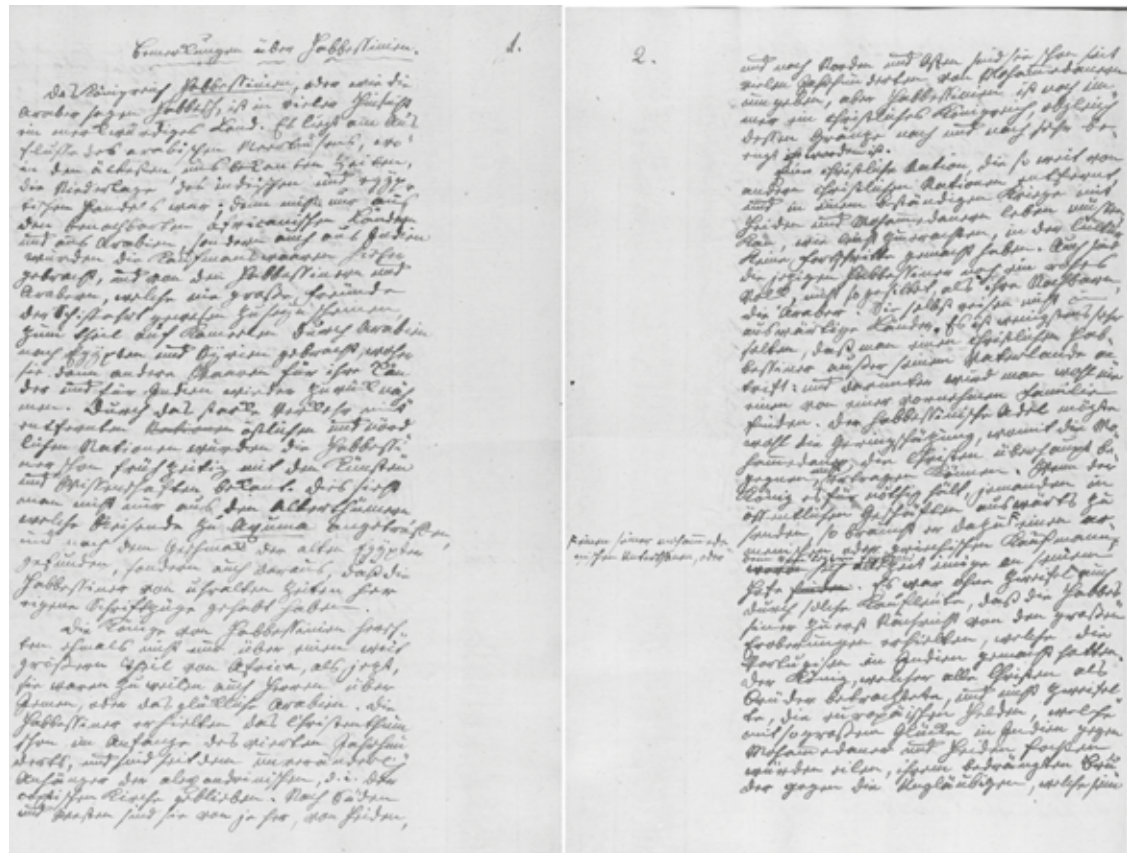 Bemerkungen über Habbessinien.
1.
Das Königreich Habbessinien, oder wie die
Araber sagen Habbesch, ist in vieler Hinsicht
ein merkwürdiges Land. Es liegt am Aus
flusse des arabischen Meerbusens, wo
in den ältesten, uns bekanten Zeiten,
die Niederlage des indischen und egyp
tischen Handels war; denn nicht nur aus
den benachbarten africanischen Ländern
und aus Arabien, sondern auch aus Indien
wurden die Kaufmanswaaren hieher
gebracht, und von den Habbessinern und
Arabern, welche nie große Freunde
der Schiffahrt gewesen zu seyn scheinen
zum theil auf Kameelen durch Arabien
nach Egypten und Syrien gebracht, woher
sie dann andere Waaren für ihre Län
der und für Indien wieder zurück näh
men. Durch das starke Verkehr mit
entfernten östlichen und nord
lichen Nationen wurden die Habbessi
ner schon frühzeitig mit den Künsten
und Wissenschaften bekant. Dies sieht
man nicht nur aus den Alterthümern
welche Reisende zu Axuma angetroffen,
und nach dem Geschmack der alten Egypter
gefunden, sondern auch daraus, daß die
Habbessiner von uhralten Zeiten her
eigene Schriftzüge gehabt haben.
Die Könige von Habbessinien hersch-
ten ehmals nicht nur über einen weit
größern Theil von Africa, als jezt,
sie waren zuweilen auch Herren über
Jemen, oder das glückliche Arabien. Die
Habbessiner erhielten das Christenthum
schon im Anfange des vierten Jahrhun
derts, und sind seitdem unveränderlich
Anhänger der alexandrinischen, d. i. der
coptischen Kirche geblieben. Nach Süden
und Westen sind sie von je her, von Heiden,
2.
und nach Norden und Osten sind sie schon seit
vielen Jahrhunderten von Mohammedanern
umgeben, aber Habbessinien ist noch im
mer ein christliches Königreich, obgleich
dessen Gränze nach und nach sehr be
engt geworden ist.
Eine christliche Nation, die so weit von
andern christlichen Nationen entfernt,
und in einem beständigen Kriege mit
Heiden und Mohammedanern leben müssen,
kan, wie leicht zu erachten, in der Cultur
keine Fortschritte gemacht haben. Auch sind
die jezigen Habbessiner noch ein rohes
Volk, nicht so gebildet, als ihre Nachbaren,
die Araber. Sie selbst reisen nicht in
auswärtige Länder. Es ist wenigstens sehr
selten, daß man einen christlichen Hab-
bessiner außer seinem Vaterlande an
trift: und darunter wird man wohl nie
einen von einer vornehmen Familie
finden. Der Habbessinische Adel mögte
wohl die Geringschäzung, womit die Mo
hammedaner die Christen überhaupt be
gegnen, nicht ertragen können. Wenn der
König es für nöthig hält, jemanden in
öffentlichen Geschäften auswärts zu
senden, so braucht er dazu einen ar-
menischen oder griechischen Kaufmann,
seiner mohammeda
nischen Unterthanen, oder
zeit einige an seinem
Hofe. Es war ohne Zweifel auch
durch solche Kaufleute, daß die Habbes
siner zuerst Nachricht von den großen
Eroberungen erhielten, welche die
Portugisen in Indien gemacht hatten.
Der König, welcher alle Christen als
Brüder betrachtete, und nicht zweifel
te, die europäischen Helden, welche
mit so großem Glücke in Indien gegen
Mohammedaner und Heiden fochten
würden eilen, ihrem bedrängten Bru
der gegen die Ungläubigen, welche sein